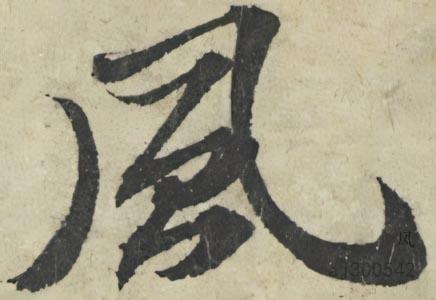 風
风
a1300542